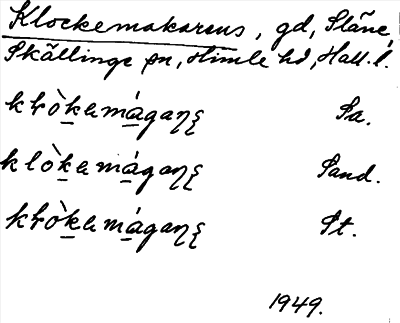 Klockemakarens, gd, Släne,
Skällinge sn, Himle hd, Hall. l.
kɽò̠kemá̠gaŋʂ Sa.
klò̠kemá̠gaŋʂ Sand.
kɽò̠kemá̠gaŋʂ St.
1949.